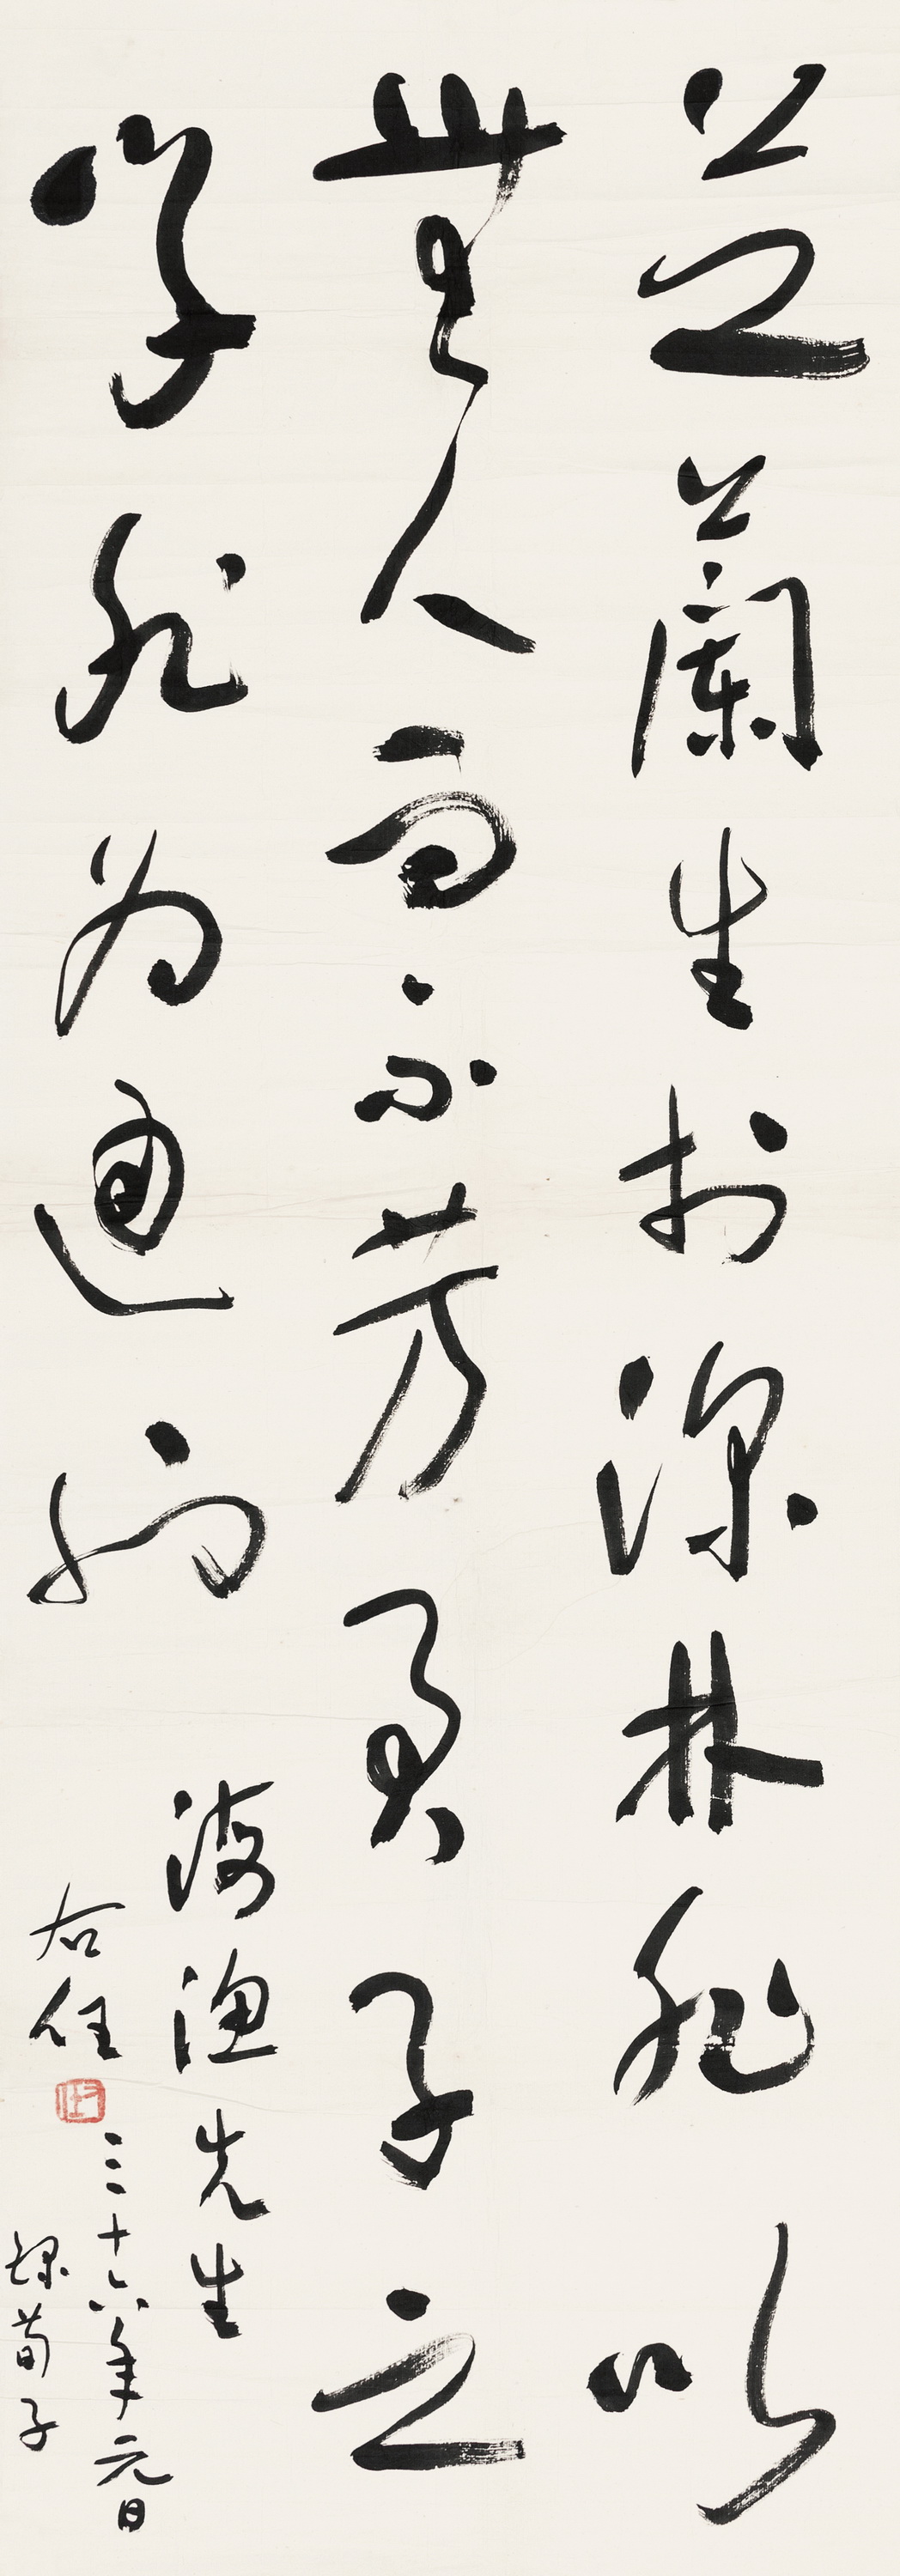 芝蘭生於深林非以
無人而不芳君子之
學非為通也
漁先生
右任
三十六年元日
錄荀子